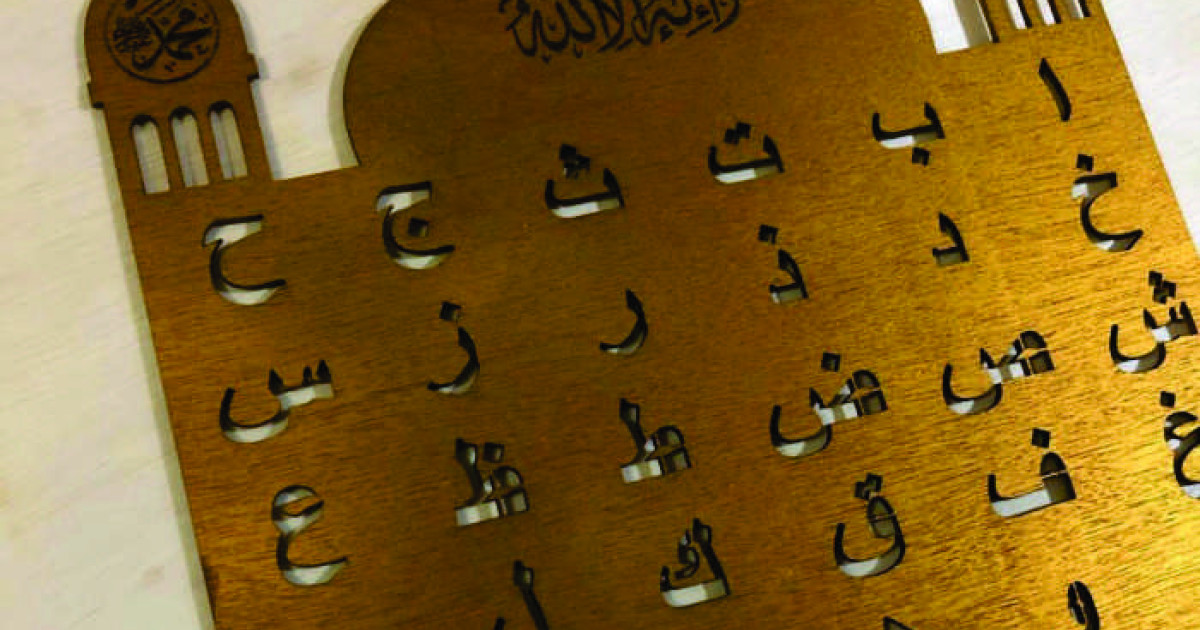 لا إله إلا الله
محمد ﷺ
ا ب ت ث ج ح
خ د ذ ر ز س
ش ص ض ط ظ ع
غ ف ق ك ل